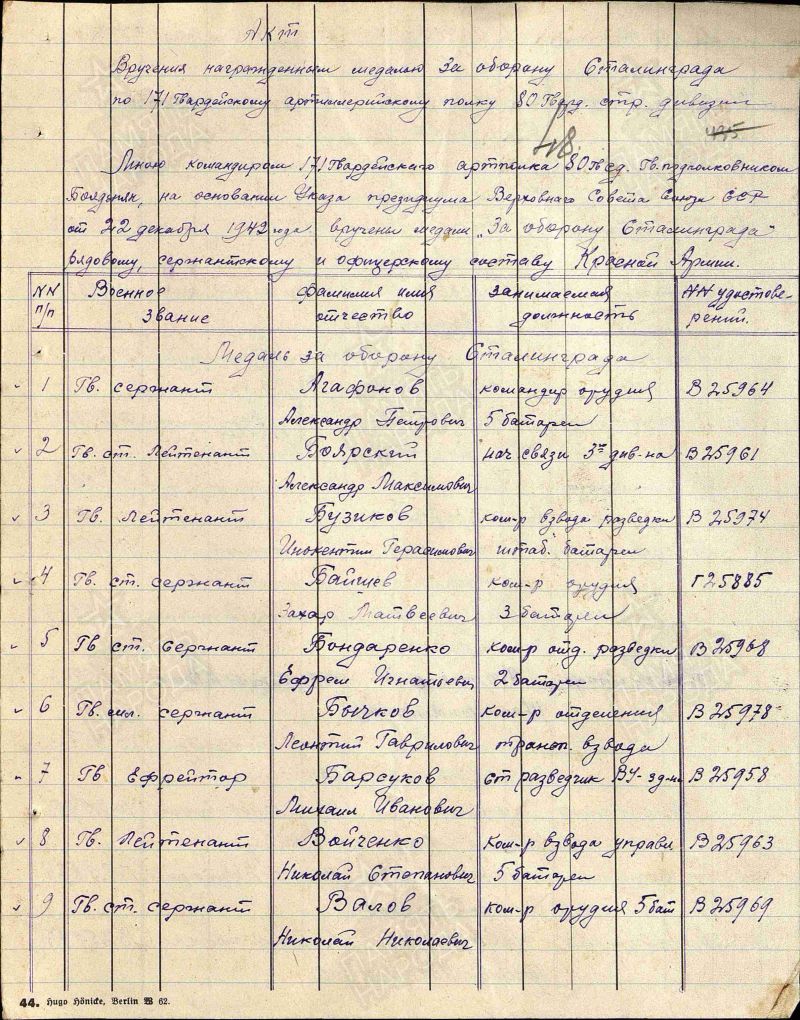 Акт
Вручения награжденным медалью За оборону Сталинграда
по 171 Гвардейскому артиллерийскому полку 80 Гвард. стр. дивизии
418. 435
Мною командиром 171 Гвардейского артполка 80 Гв. подполковником
на основании Указа президиума Верховного Совета Союза ССР
от 22 декабря 1942 года вручены медали „За оборону Сталинграда"
рядовому, сержантскому и офицерскому составу Красной Армии.
NN Военное фамилия имя занимаемая NN удостове-
п/п звание отчество должность рений.
Медаль за оборону Сталинграда
1 Гв. сержант Агафонов командир орудия В 25964
Александр Петрович 5 батареи
2 Гв. ст. Лейтенант Боярский нач связи 3го див-на В 25961
Александр Максимович
3 Гв. Лейтенант Бузиков ком-р взвода разведки В 25974
Инокентий Герасимович штаб. батареи
4 Гв. ст. сержант Байшев ком-р орудия Г 25885
Захар Матвеевич 3 батареи
5 Гв ст. Сержант Бондаренко ком-р отд. разведки В 25968
Ефрем Игнатьевич 2 батареи
6 Гв. мл. сержант Бычков ком-р отделения В 25978
Леонтий Гаврилович трансп. взвода
7 Гв Ефрейтор Барсуков ст разведчик ВУ- В 25958
Михаил Иванович
8 Гв. Лейтенант Войченко ком-р взвода управл В 25963
Николай Степанович 5 батареи
9 Гв. ст. сержант Валов ком-р орудия 5 бат В 25969
Николай Николаевич
44. Hugo Hönicke, Berlin W 62.